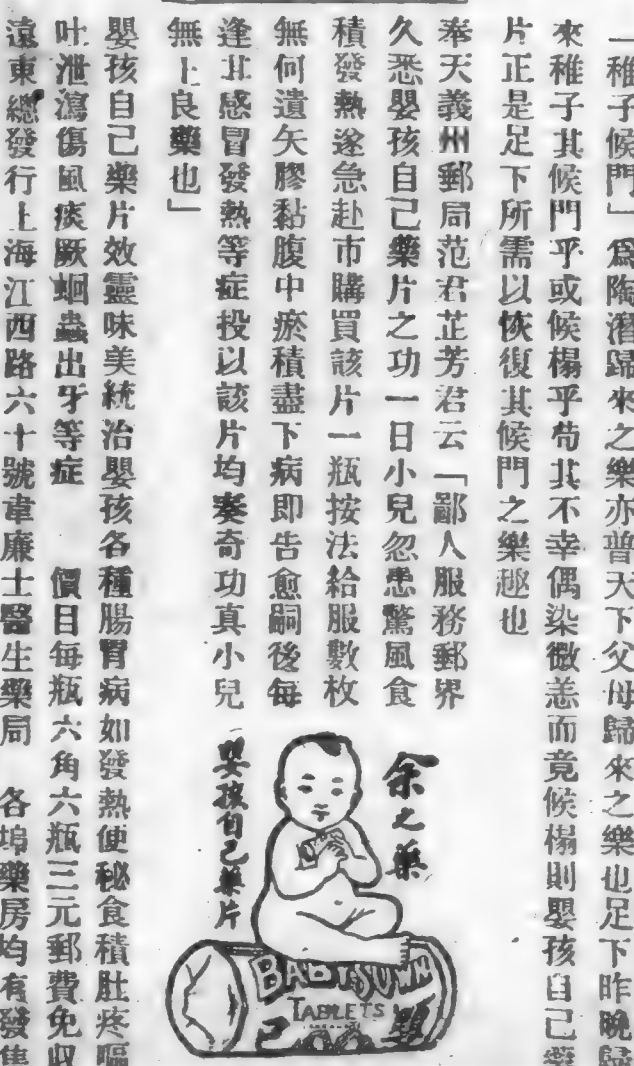 「稚子候門」爲陶潛歸來之樂亦普天下父母歸來之樂也足下昨晚歸
來稚子其候門乎或候榻乎苟其不幸偶染微恙而竟候榻則嬰孩自己藥
片正是足下所需以恢復其候門之樂趣也
奉天義州郵局范君芷芳君云「鄙人服務郵界
久悉嬰孩自己藥片之功一日小兒忽患驚風食
積發熱遂急赴市購買該片一瓶按法給服數枚
無何遺矢膠黏腹中瘀積盡下病即告愈嗣後每
逢其感冒發熱等症投以該片均奏奇功真小兒
無上良藥也」
嬰孩自己藥片效靈味美統治嬰孩各種腸胃病如發熱便秘食積肚疼嘔
吐泄瀉傷風痰厥蛔蟲出牙等症 價目每瓶六角六瓶三元郵費免收
遠東總發行上海江西路六十號韋廉士醫生藥局 各埠藥房均有發售
余之藥
嬰孩自己藥片
BABY'S OWN
TABLETS
己